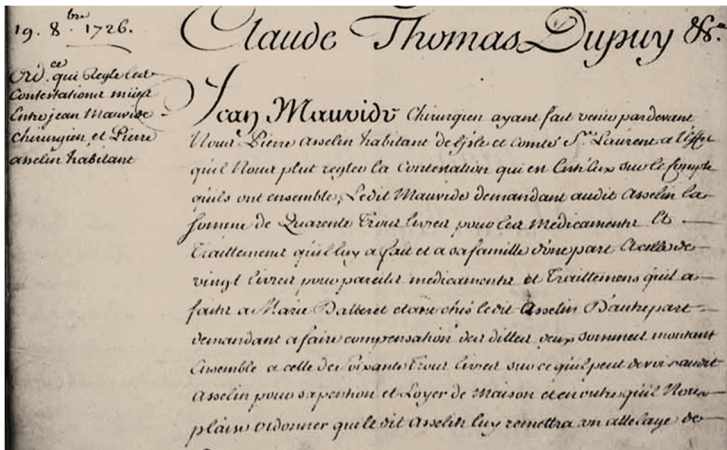 19. 8.bre 1726.
Ord.ce qui Regle les
Contestations mües
Entre jean Mauvide
chirurgien et Pierre
asselin habitant
Claude Thomas Dupuy &c.
Jean Mauvide Chirurgien ayant fait venir pardevant
Nous Pierre asselin habitant de lisle et Comté St. Laurent a l'effet
quil Nous plut regler la Contestation qui est Entr'eux sur le Compte
quils ont ensemble, Ledit Mauvide demandant audit Asselin la
somme de Quarente Trois livres pour les Medicamens Et
Traittemens quil luy a fait et a sa famille d'une part Et celle de
vingt livres pour pareils medicamens et Traittemens quil a
faits a Marie etant chés ledit Asselin D'autre part
demandant a faire compensation des dittes deux sommes montant
Ensemble a celle de soixante Trois livres sur ce quil peut devoir audit
Asselin pour sa pention et Loyer de Maison et en outre quil Nous
plaise ordonner que ledit Asselin luy remettra un attelage de